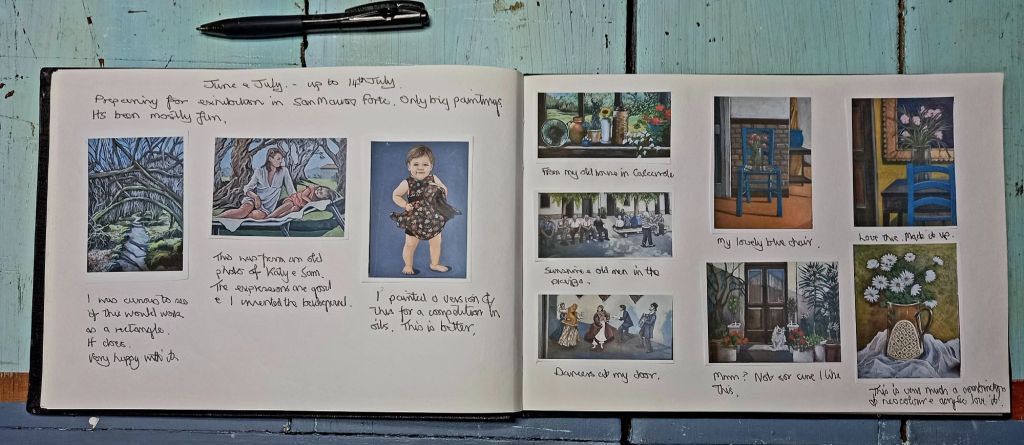 June & July - up to 14th July.
Preparing for exhibition in San Mauro Forte. Only big paintings.
Its been mostly fun.
I was curious to see
if this would work
as a rectangle.
It does.
Very happy with it.
This was from an old
photo of Katy & Sam.
The expressions are good
& I invented the background.
I painted a version of
this for a competition in
oils. This is better.
From my old home in
Sunshine & old men in the
Dancers at my door.
My lovely blue chair.
Love this. Made it up.
Mmm? Not sor sure I like
this.
This is very much a
of neocolour & acrylic love it!